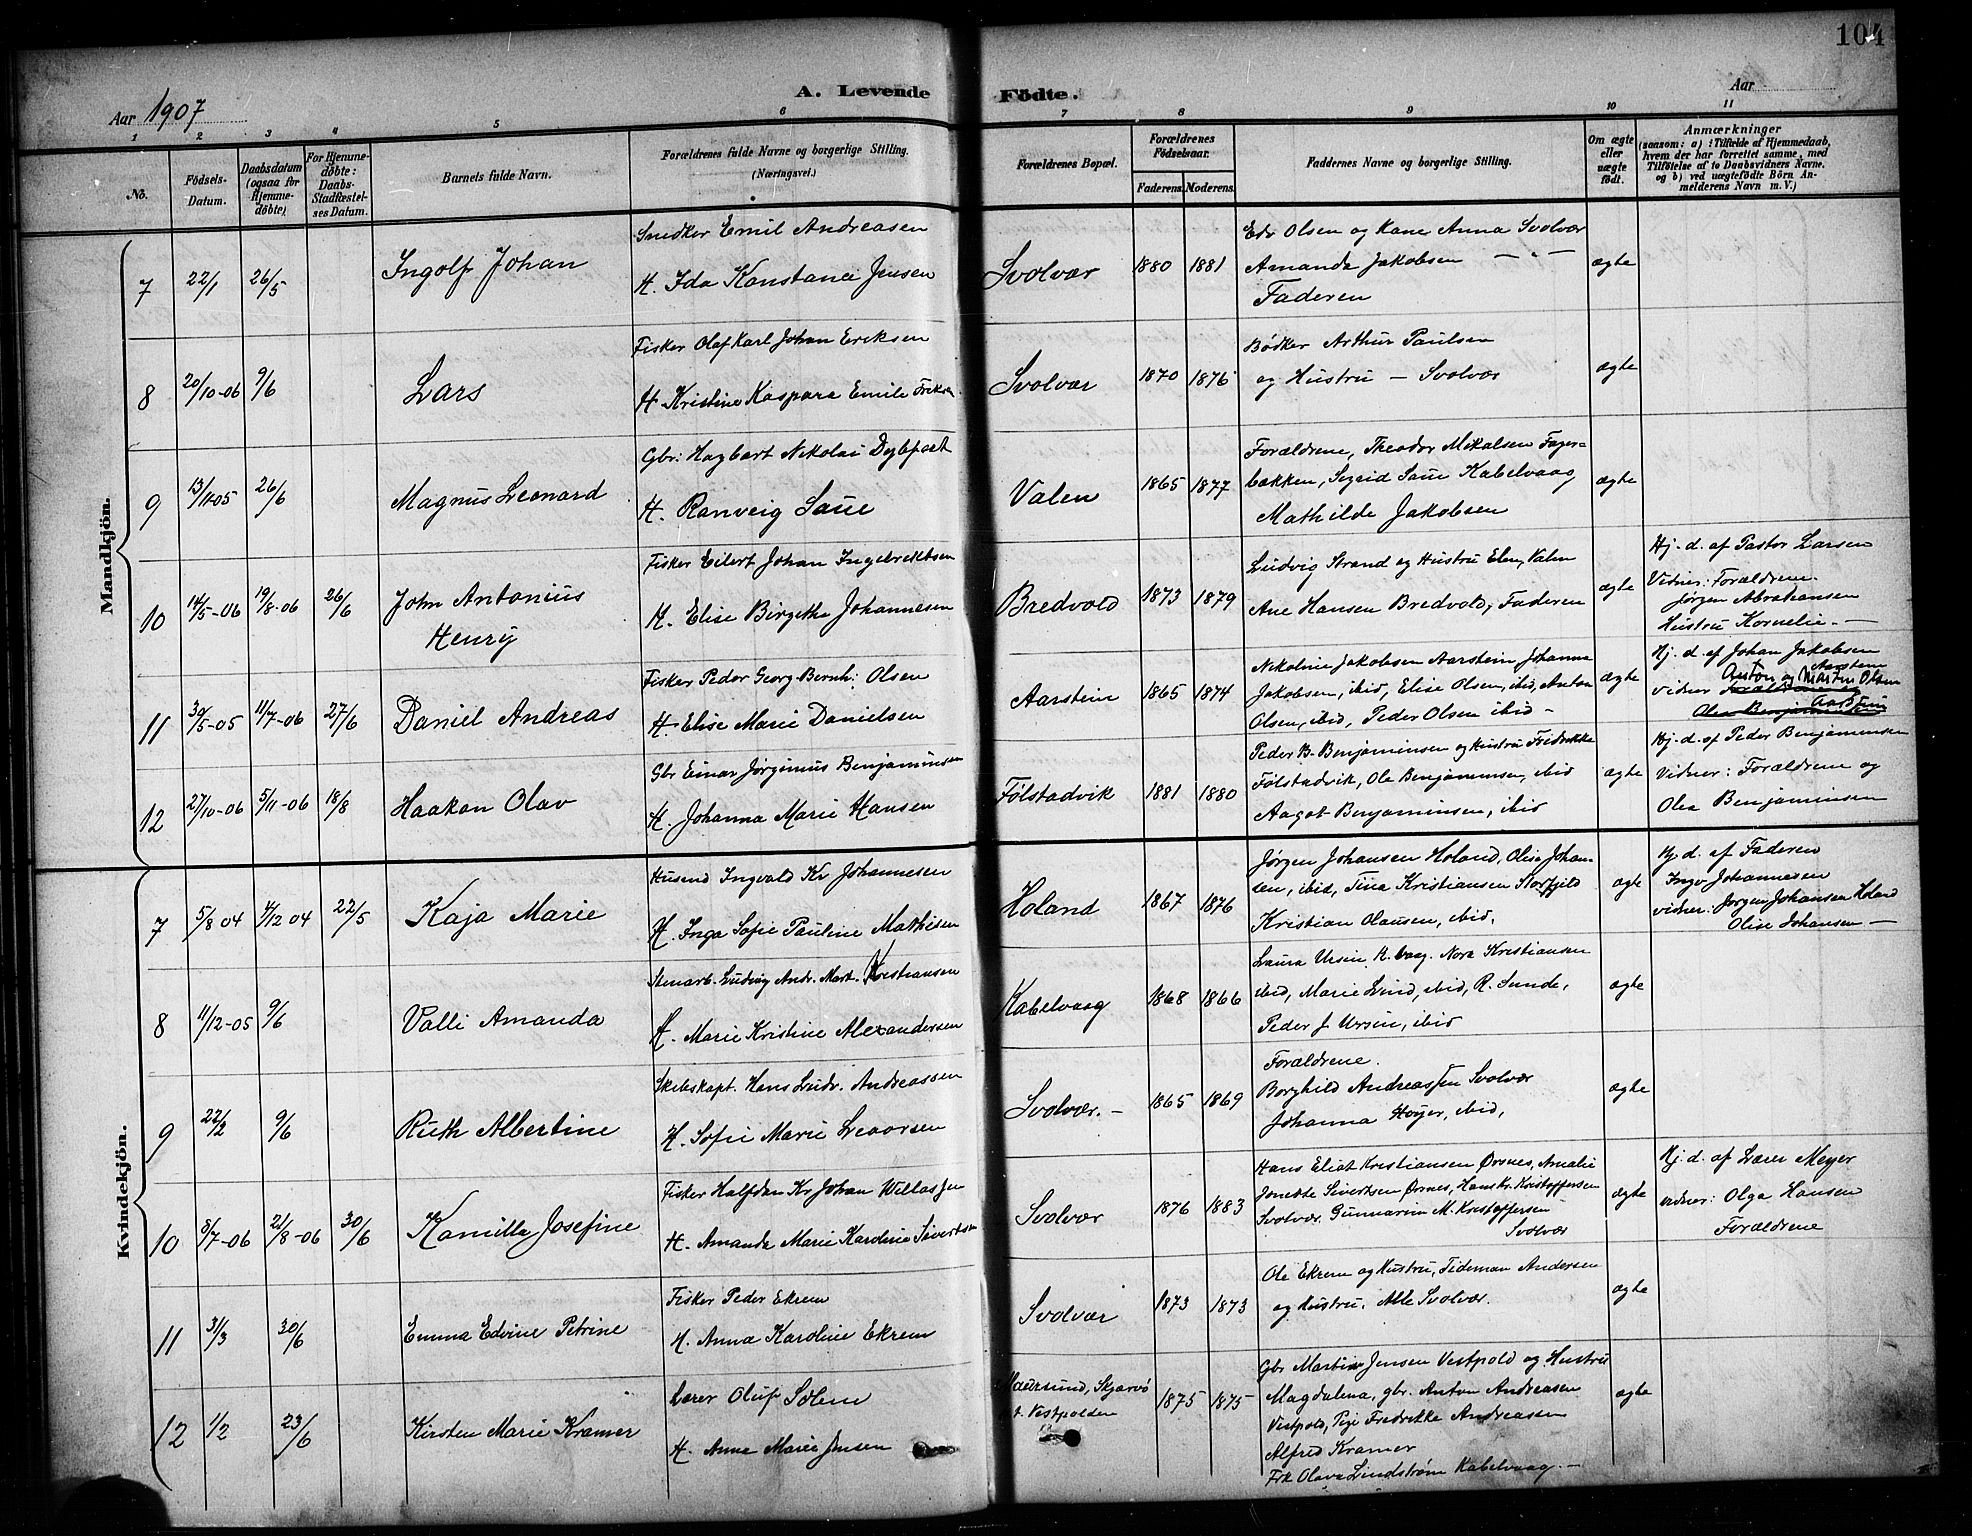 104
Aar 1907
A. Levende
Födte.
Aar
1 2 3 4 5 6 7 8 9 10 11
No.
Födsels-Datum.
Daabsdatum (ogsaa for Hjemmedöbte.)
For Hjemmedöbte: Daabs-Stadfæstelses Datum.
Barnets fulde Navn.
Forældrenes fulde Navne og borgerlige Stilling. (Næringsvei.)
Forældrenes Bopæl.
Forældrenes Födselsaar.
Faderens. Moderens.
Faddernes Navne og borgerlige Stilling.
Om ægte eller uægte födt.
Anmærkninger
(saasom: a) i Tilfælde af Hjemmedaab, hvem der har forrettet samme, med Tilföielse af to Daabsvidners Navne, og b) ved uægtefödte Börn Anmelderens Navn m. V.)
Mandkjön.
7 22/1 26/5 Ingolf Johan
Snedker Emil Andreasen
H. Ida Konstance Jensen
Svolvær 1880 1881
Edv Olsen og Kone Anna Svolvær
Amanda Jakobsen — " —
Faderen
ægte
8 20/10-06 9/6 Lars
Fisker Olaf Karl Johan Eriksen
H. Kristine Kaspara Emilie
Svolvær 1870 1876
Bödker Arthur Paulsen
og Hustru — Svolvær
ægte
9 13/11-05 26/6 Magnus Leonard
Gbr: Hagbart Nikolai
H. Ranveig Saue
Valen 1865 1877
Forældrene, Theodor Mikalsen Fager-
bakken, Sigrid Saue Kabelvaag
Mathilde Jakobsen
ægte
10 14/5-06 19/8-06 26/6 John Antonius
Henry
Fisker Eilert Johan Ingebrektsen
H. Elise Birgithe Johannesen
Bredvold 1873 1879
Ludvig Strand og Hustru Elen, Valen
Ane Hansen Bredvold, Faderen
ægte
Hj. d. af Pastor Larsen
Vidner: Forældrene.
Jørgen Abrahansen
Hustru Kornelie. —
11 30/5-05 11/7-06 27/6 Daniel Andreas
Fisker Peder Georg Bernh: Olsen
H. Elise Marie Danielsen
Aarstein 1865 1874
Nikoline Jakobsen Aarstein Johanna
Jakobsen, ibid, Elise Olsen, ibid, Anton
Olsen, ibid, Peder Olsen ibid -
ægte
Hj. d. af Johan Jakobsen
Aarstein
vidner Anton og Martin Olsen
Aarstein
12 27/10-06 5/11-06 18/8 Haakon Olav
Gbr Einar Jørginius Benjaminsen
H. Johanna Marie Hansen
Følstadvik 1881 1880
Peder B. Benjaminsen og Hustru Fredrikke
Følstadvik, Ole Benjaminsen, ibid
Aagot Benjaminsen, ibid
ægte
Hj. d. af Peder Benjaminsen
Vidner: Forældrene og
Olea Benjaminsen
Kvindekjön.
7 5/8 04 4/12 04 22/5 Kaja Marie
Husmd Ingvald Kr Johannesen
H. Inga Sofie Pauline Mathisen
Holand 1867 1876
Jørgen Johansen Holand, Olise Johan-
sen, ibid, Tina Kristiansen Storfjeld
Kristian Olausen, ibid,
ægte
Hj. d. af Faderen
Ingv Johannesen
vidner: Jørgen Johansen Holand
Olise Johansen —
8 11/12-05 9/6 Valli Amanda
Stenarb. Ludvig Andr. Mart. Kristiansen
H. Marie Kristine Alexandersen
Kabelvaag 1868 1866
Laura Ursin K.vaag. Nora Kristiansen
ibid, Marie Lind, ibid, R. Sunde,
Peder J Ursin, ibid
ægte
9 22/2 9/6 Ruth Albertine
Skibskapt. Hans Ludv. Andreassen
H. Sofie Marie
Svolvær. — 1865 1869
Forældrene.
Borghild Andreassen Svolvær
Johanna Høyer, ibid,
ægte
10 3/7-06 21/8-06 30/6 Kamilla Josefine
Fisker Halfdan Kr Johan Willassen
H. Amanda Marie Karoline Sivertsen
Svolvær 1876 1883
Hans Eliot Kristiansen Ørsnes, Amalie
Jonette Sivertsen Ørsnes, Hans Kr. Kristoffersen
Svolvær. M. Kristoffersen
Svolvær
ægte
Hj. d. af Lærer Meyer
vidner: Olga Hansen
Forældrene
11 31/3 30/6 Emma Edvine Petrine
Fisker Peder Ekrem
H. Anna Karoline Ekrem
Svolvær 1873 1873
Ole Ekrem og Hustru, Tideman Andersen
og Hustru. Alle Svolvær.
ægte
12 1/2 23/6 Kirsten Marie Kramer
Lærer Oluf Solem
H. Anna Marie Jensen
Skjærvø
t. Vestpolden
1875 1875
Gbr Martin Jensen Vestpold og Hustru
Magdalena, gbr. Anton Andreasen
Vestpold, Pige Fredrikke Andreassen
Alfred Kramer
Frk Olava Lindstrøm Kabelvaag. —
ægte